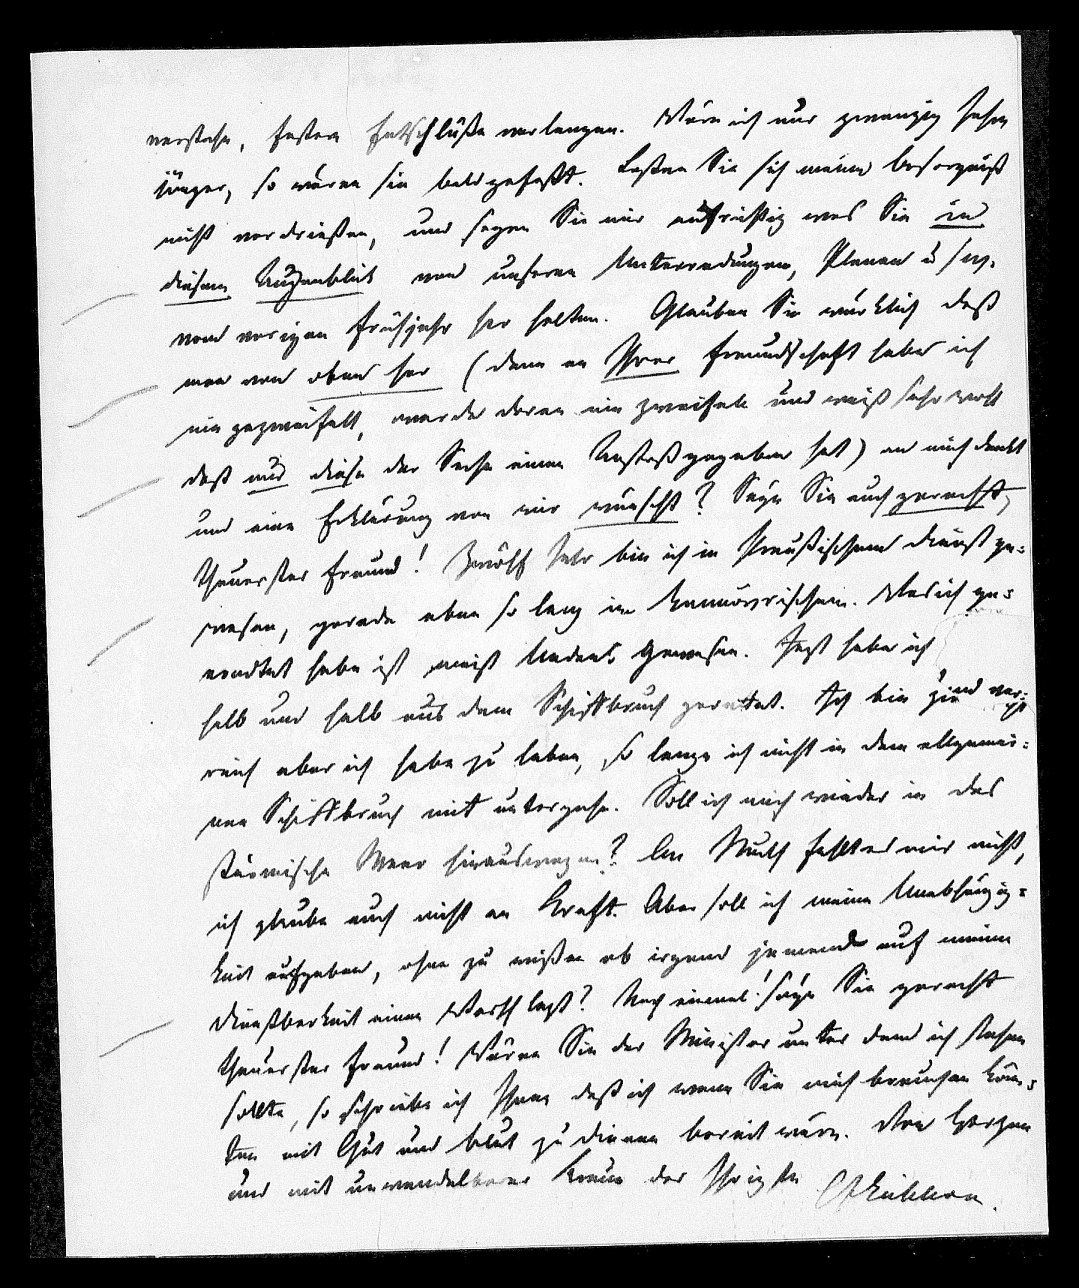 verstehe, festere Entschlüße verlangen. Wäre ich nur zwanzig Jahre
jünger, so wären sie bald gefaßt. Laßen Sie sich meine Besorgniß
nicht verdrießen, und sagen Sie mir aufrichtig was Sie in
diesem Augenblick von unseren Unterredungen, Planen u
vom vorigen Frühjahr her halten. Glauben Sie würklich daß
man von oben her (denn an Ihrer Freundschaft habe ich
nie gezweifelt, werde daran nie zweifeln und weiß sehr wohl
daß nur diese der Sache einen Anstoß gegeben hat) an mich denkt
und eine Erklärung von mir wünscht? Seyn Sie auch gerecht,
theuerster Freund! Zwölf Jahr bin ich in Preußischem Dienst ge=
wesen, gerade eben so lang im Hannövrischen. Was ich ge=
erndtet habe ist meist Undank gewesen. Jezt habe ich
halb und halb aus dem Schiffbruch gerettet. Ich bin
reich aber ich habe zu leben, so lange ich nicht in dem allgemei=
nen Schiffbruch mit untergehe. Soll ich mich wieder in das
stürmische Meer hinauswagen? An Muth fehlt es mir nicht,
ich glaube auch nicht an Kraft. Aber soll ich meine Unabhängig=
keit aufgeben, ohne zu wißen ob irgend jemand auf meine
Dienstbarkeit einen Werth legt? Noch einmal! Seyn Sie gerecht
theuerster Freund! Wären Sie der Minister unter dem ich stehen
sollte, so schriebe ich Ihnen daß ich wenn Sie mich brauchen kön=
ten mit Gut und Blut zu dienen bereit wäre. Von Herzen
und mit unwandelbarer Treue der Ihrigste